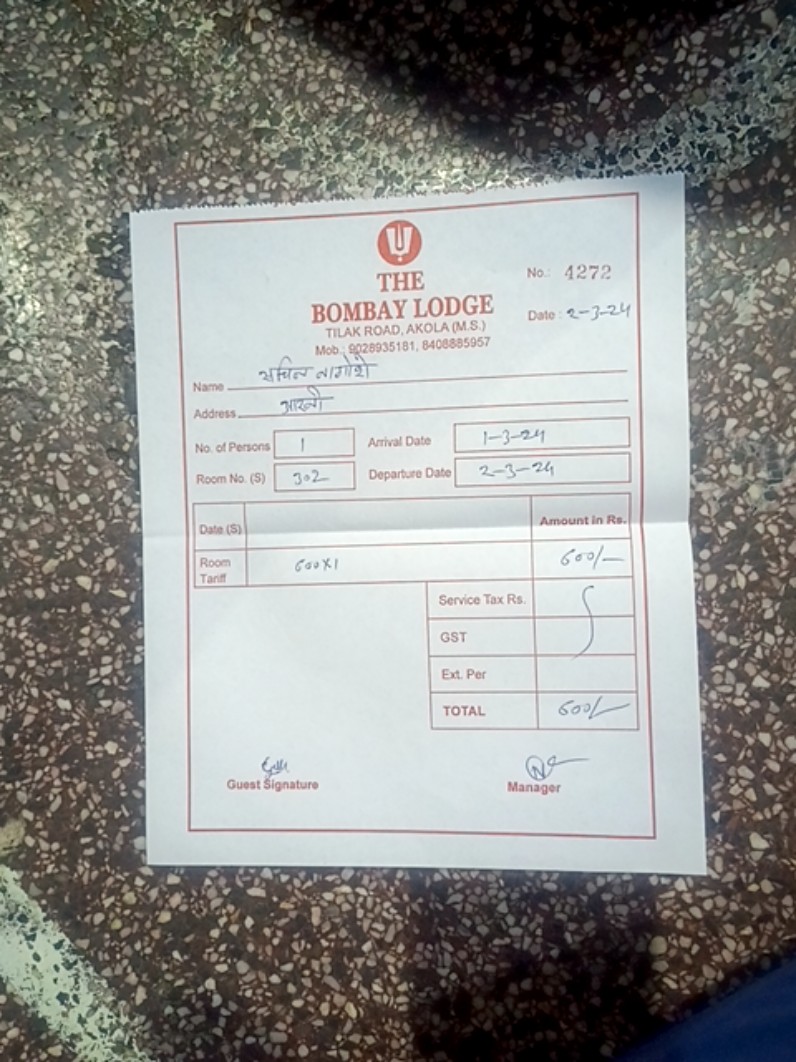 No.: 4272
THE
BOMBAY LODGE
Date : 2-3-24
TILAK ROAD, AKOLA (M.S.)
Mob.: 9028935181, 8408885957
Name सचिन नागोशे
Address आर्णी
No. of Persons 1 Arrival Date 1-3-24
Room No. (S) 302 Departure Date 2-3-24
Date (S) Amount in Rs.
Room Tariff 600X1 600/-
Service Tax Rs.
GST
Ext. Per
TOTAL 600/-
Guest Signature Manager